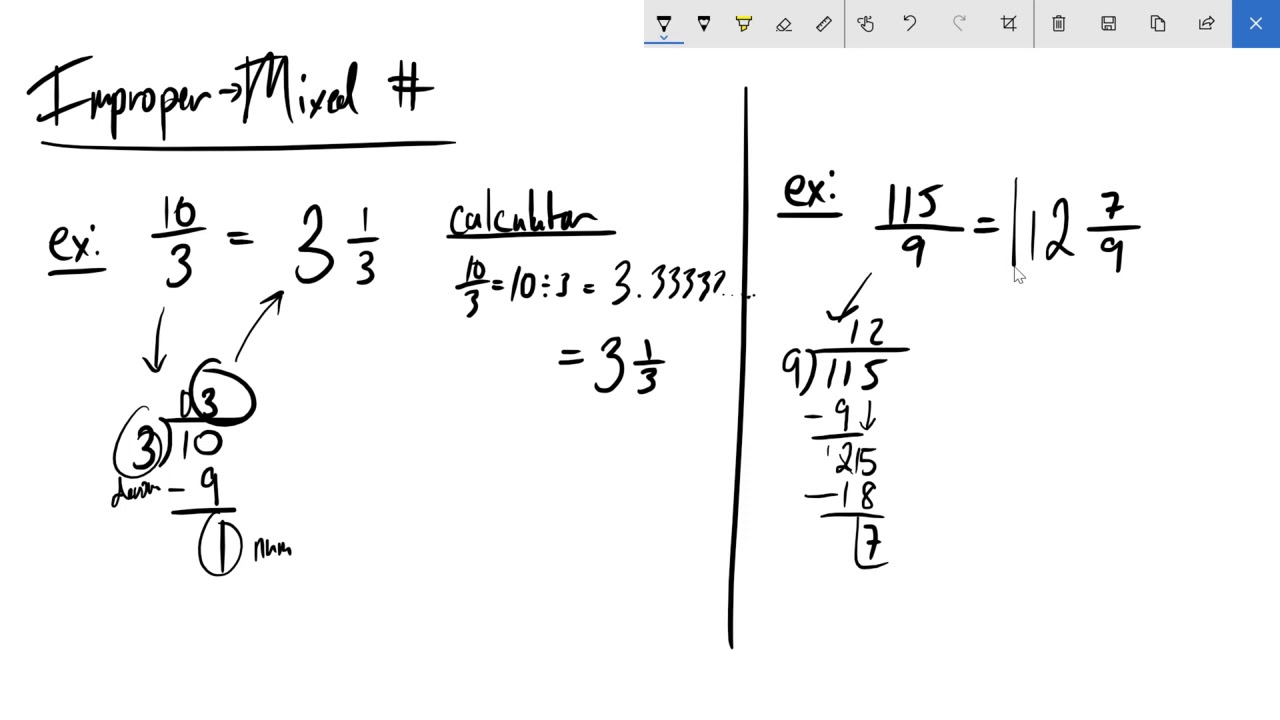 Improper → Mixed #
ex: 10/3 = 3 1/3
03
3)10
denom - 9
1 num
calculator
10/3 = 10 ÷ 3 = 3.33333.....
= 3 1/3
ex: 115/9 = 12 7/9
12
9)115
- 9 ↓
25
- 18
7